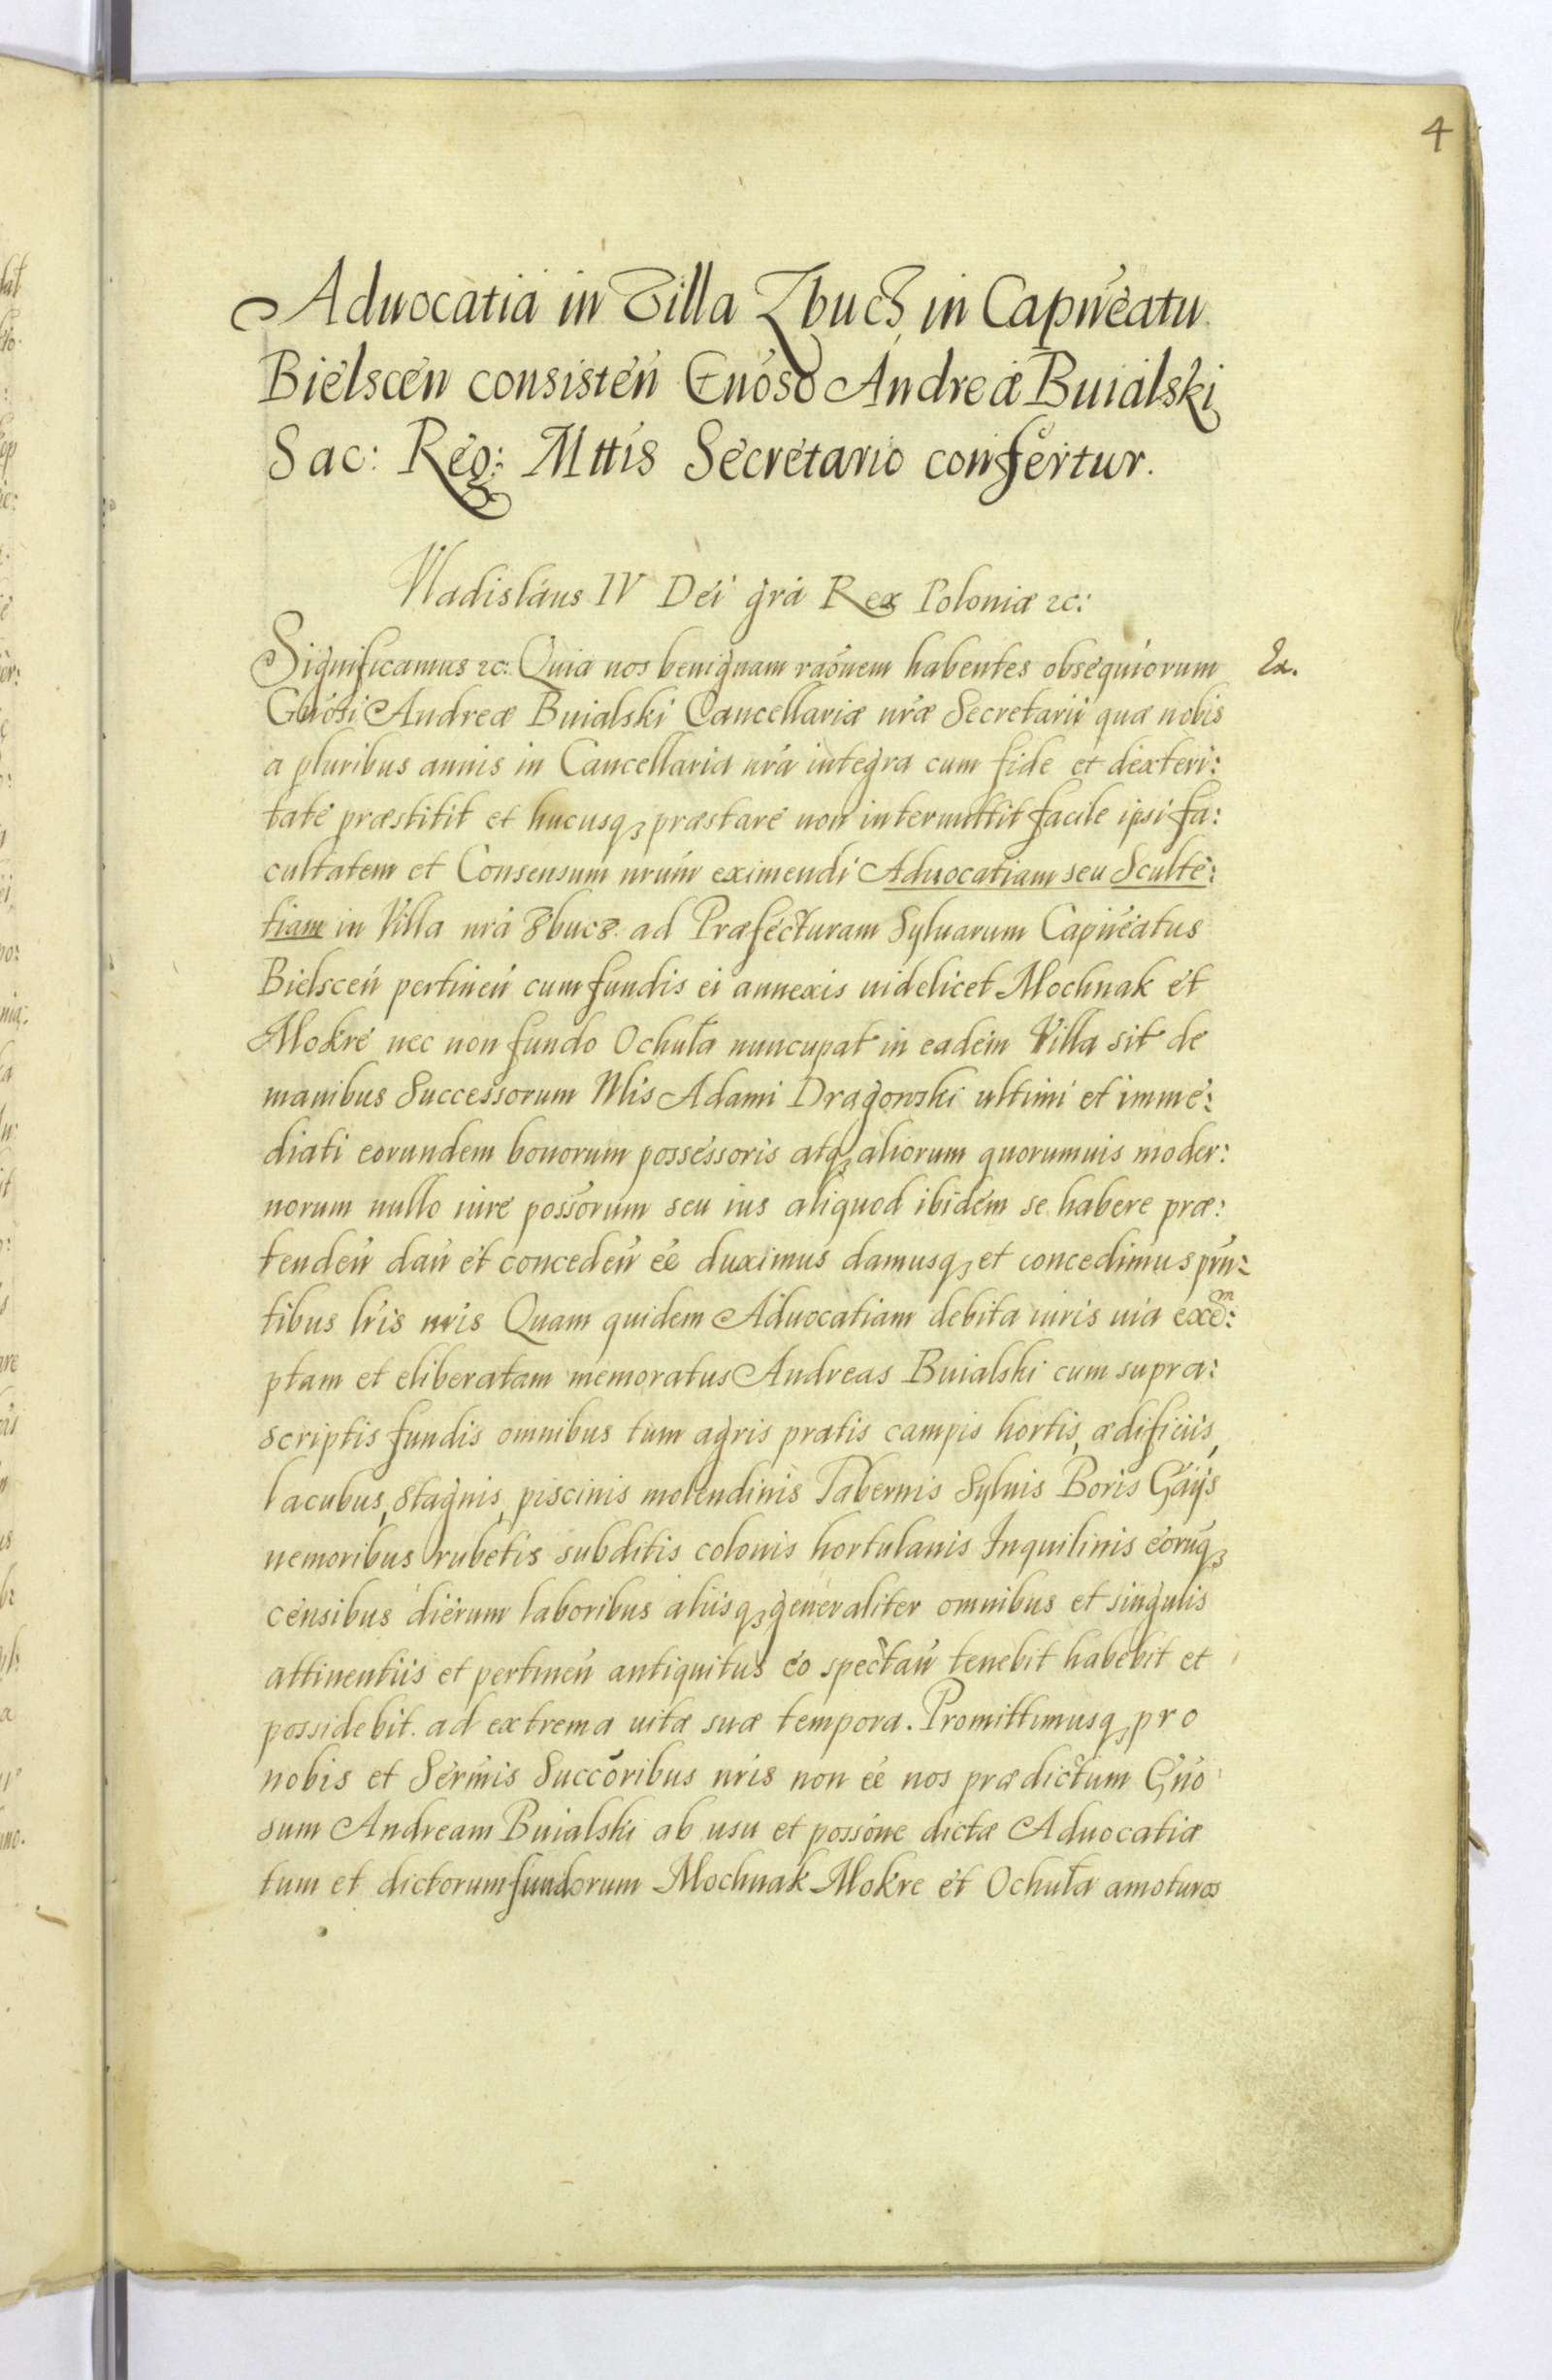 4
Aduocatia in Villa Zbucz in Capn̄eatu
Bielscen̄ consisten̄ Gn̄oso Andreæ Buialski
Sac: Reg: Mttis Secretario confertur.
Vladislaus IV Dei grā Rex Poloniæ &c:
Significamus &c: Quia nos benignam raōnem habentes obsequiorum
Ex.
Gn̄osi Andreæ Buialski Cancellariæ nr̄æ Secretarii quæ nobis
a pluribus annis in Cancellaria nr̄a integra cum fide et dexteri:
tate præstitit et hucusq3 præstare non intermittit facile ipsi fa:
cultatem et Consensum nr̄um eximendi Aduocatiam seu Sculte:
tiam in Villa nr̄a Zbucz ad Præfecturam Syluarum Capn̄eatus
Bielscen̄ pertinen̄ cum fundis ei annexis uidelicet Mochnak et
Mokre nec non fundo Ochuła nuncupat in eadem Villa sit de
manibus Successorum Nlis Adami Dragowski ultimi et imme:
diati eorundem bonorum possessoris atq3 aliorum quorumuis moder:
norum nullo iure poss̄orum seu ius aliquod ibidem se habere præ:
tenden̄ dan̄ et conceden̄ ēe duximus damusq3 et concedimus pn̄:
tibus lr̄is nr̄is Quam quidem Aduocatiam debita iuris uia exēm:
ptam et eliberatam memoratus Andreas Buialski cum supra:
scriptis fundis omnibus tum agris pratis campis hortis, ædificiis,
lacubus, stagnis, piscinis molendinis Tabernis Syluis Boris Gays
nemoribus rubetis subditis colonis hortulanis Inquilinis eorūq3
censibus dierum laboribus aliisq3 generaliter omnibus et singulis
attinentiis et pertinen̄ antiquitus eo spectan̄ tenebit habebit et
possidebit ad extrema uitæ suæ tempora. Promittimusq3 pro
nobis et Serm̄is Succōribus nr̄is non ēe nos prædictum Gn̄o
sum Andream Buialski ab usu et possōne dictæ Aduocatiæ
tum et dictorum fundorum Mochnak Mokre et Ochuła amoturos